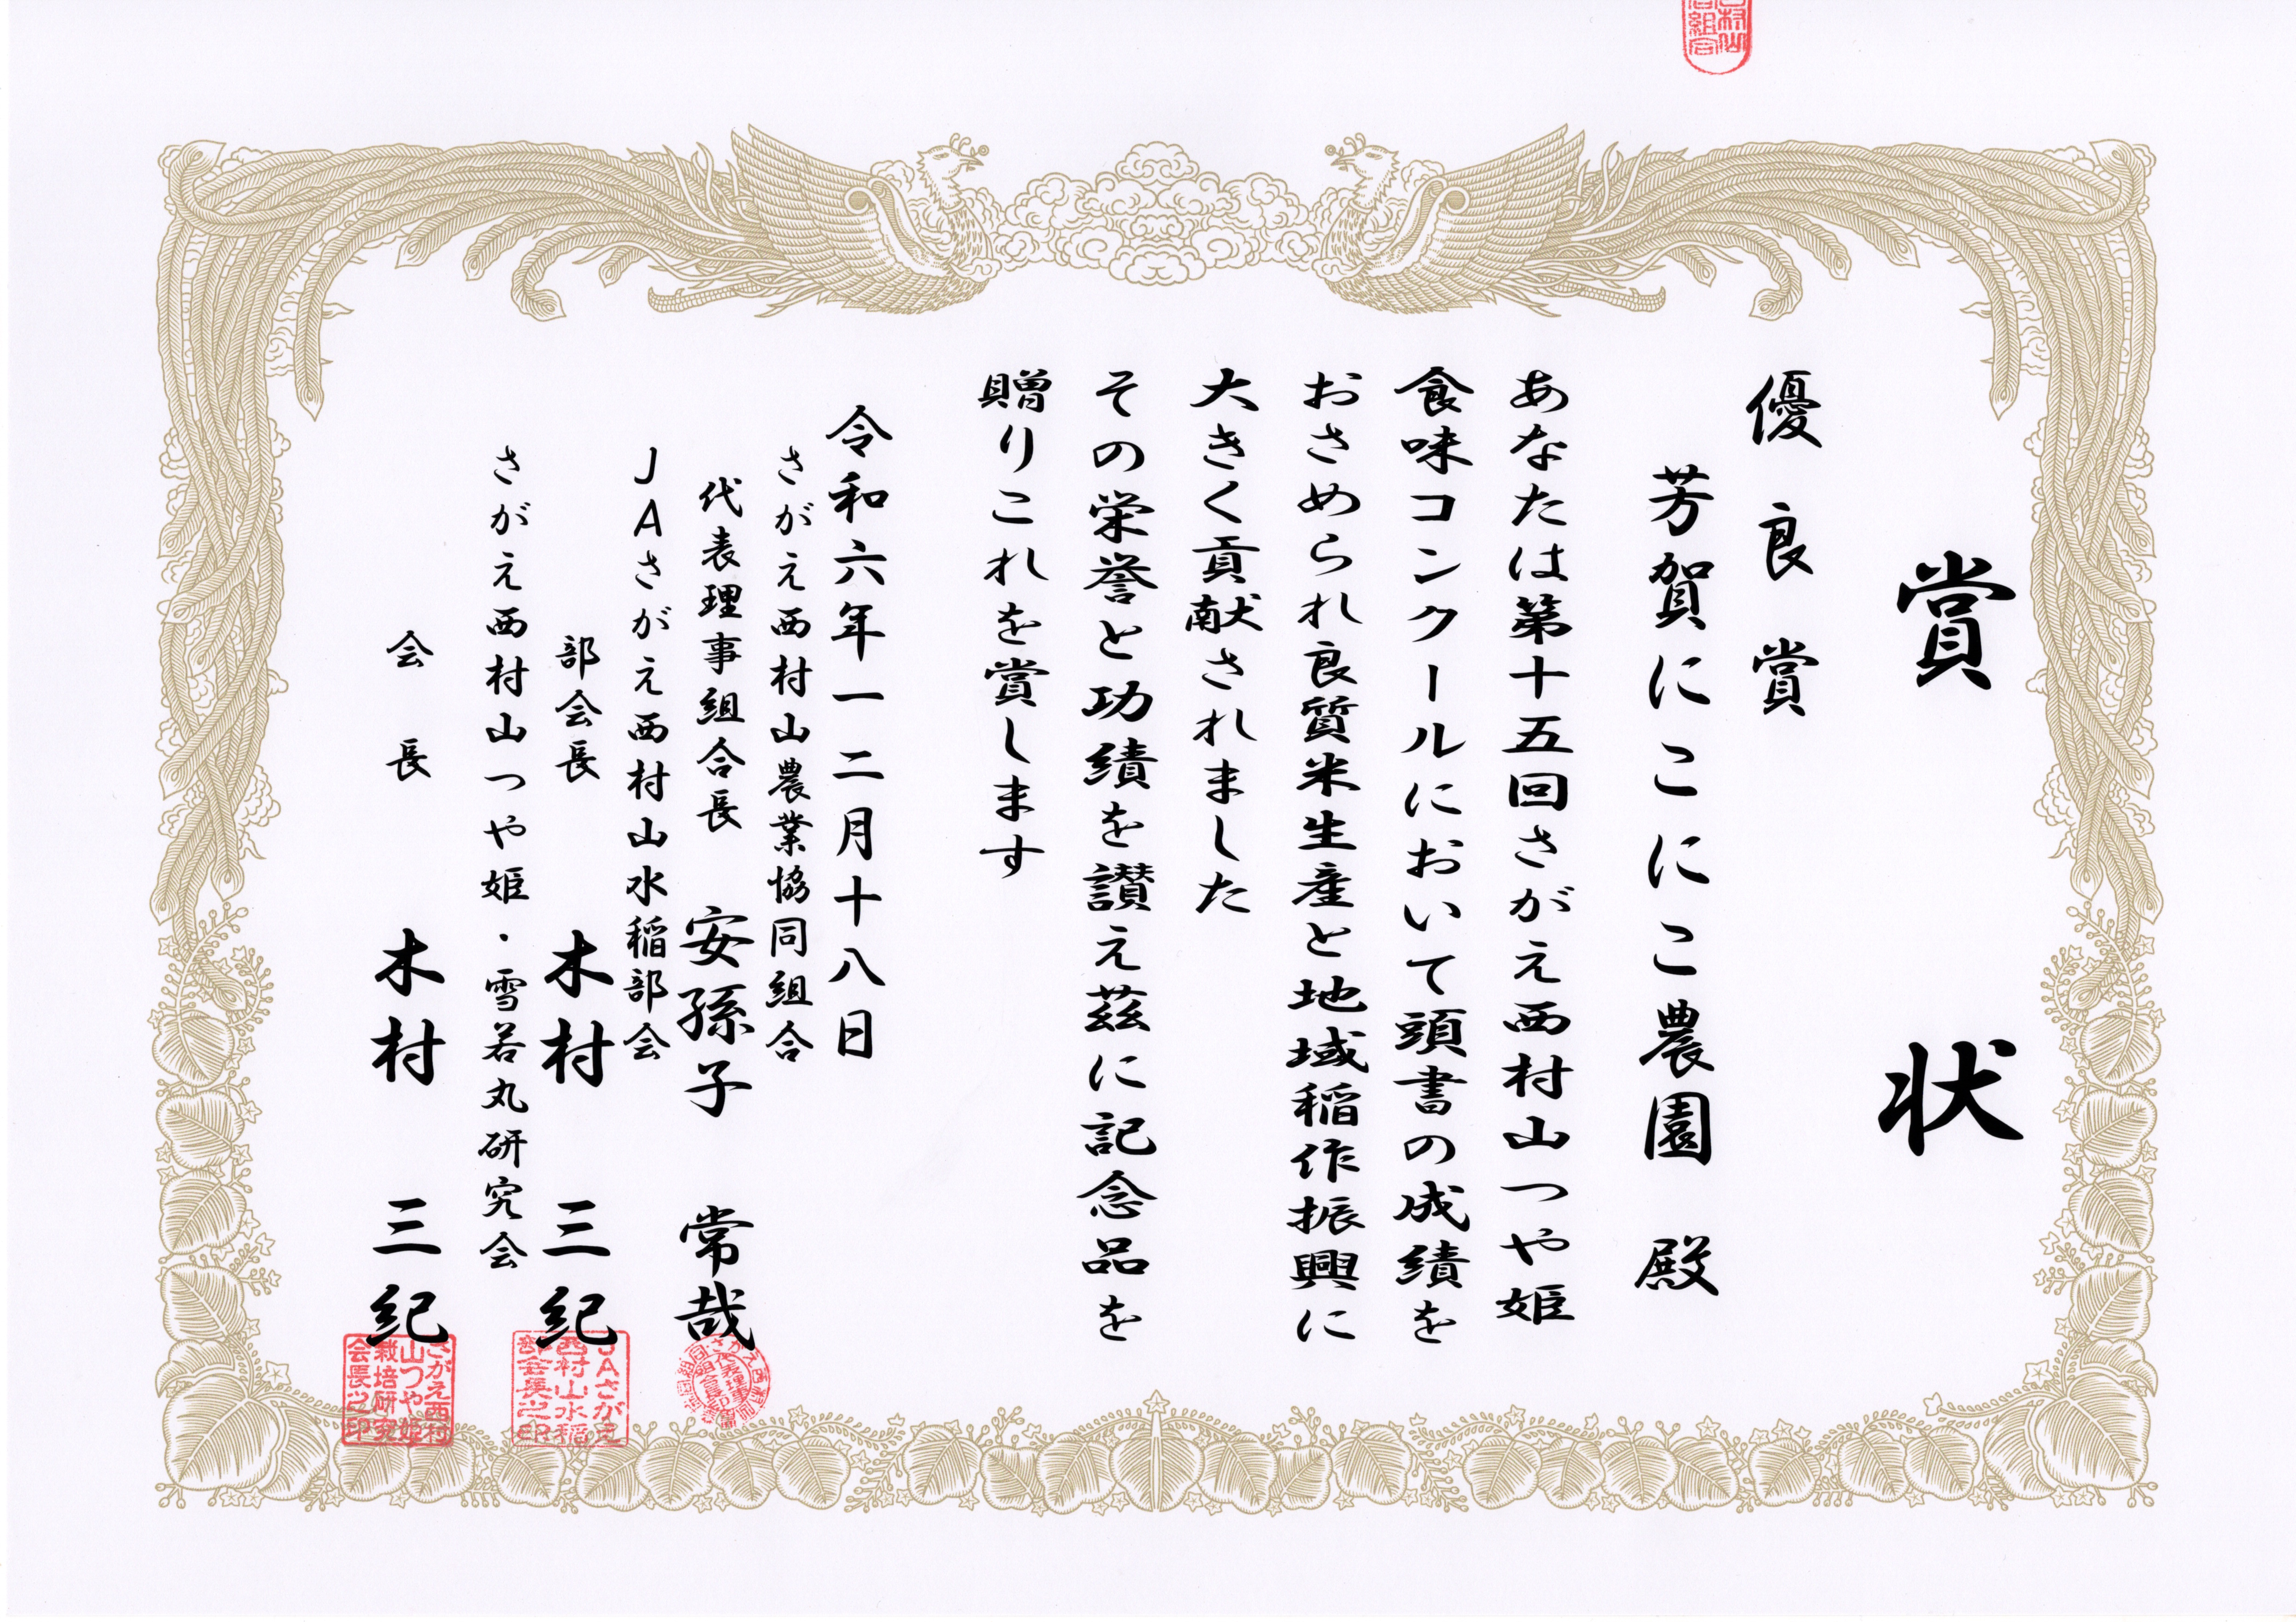 賞状
優良賞
芳賀にこにこ農園 殿
あなたは第十五回さがえ西村山つや姫
食味コンクールにおいて頭書の成績を
おさめられ良質米生産と地域稲作振興に
大きく貢献されました
その栄誉と功績を讃え茲に記念品を
贈りこれを賞します
令和六年一二月十八日
さがえ西村山農業協同組合
代表理事組合長 安孫子 常哉
JAさがえ西村山水稲部会
部会長 木村 三紀
さがえ西村山つや姫・雪若丸研究会
会長 木村 三紀
JAさがえ
西村山水稲
部会長之印
さがえ西村
山つや姫
栽培研究
会長之印